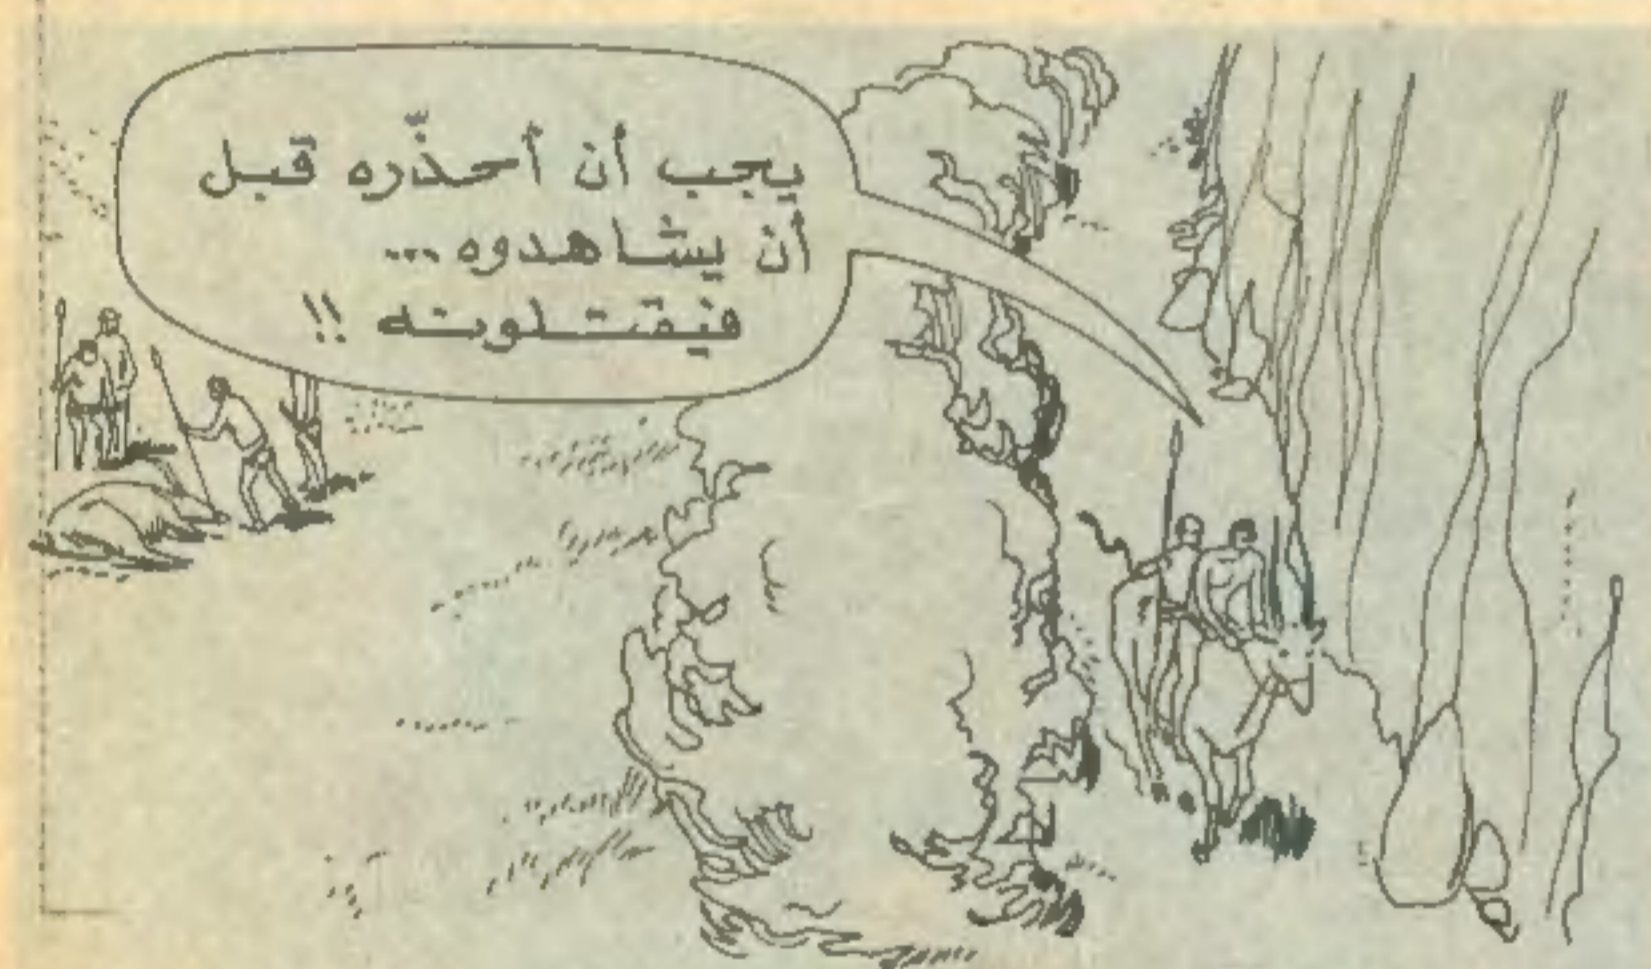 يجب أن أحذّره قبل
أن يشاهدوه...
فيقتلونه !!